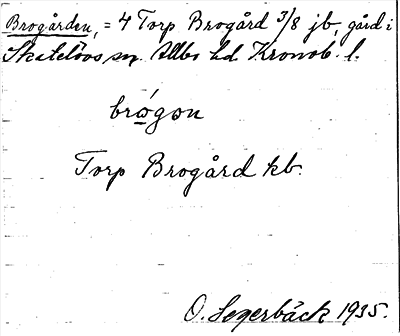 Brogården, = 4 Torp Brogård 3/8 jb, gård i
Skatelövs sn. Allbo hd Kronob. l.
brógən
Torp Brogård kb.
O. Segerbäck 1935.